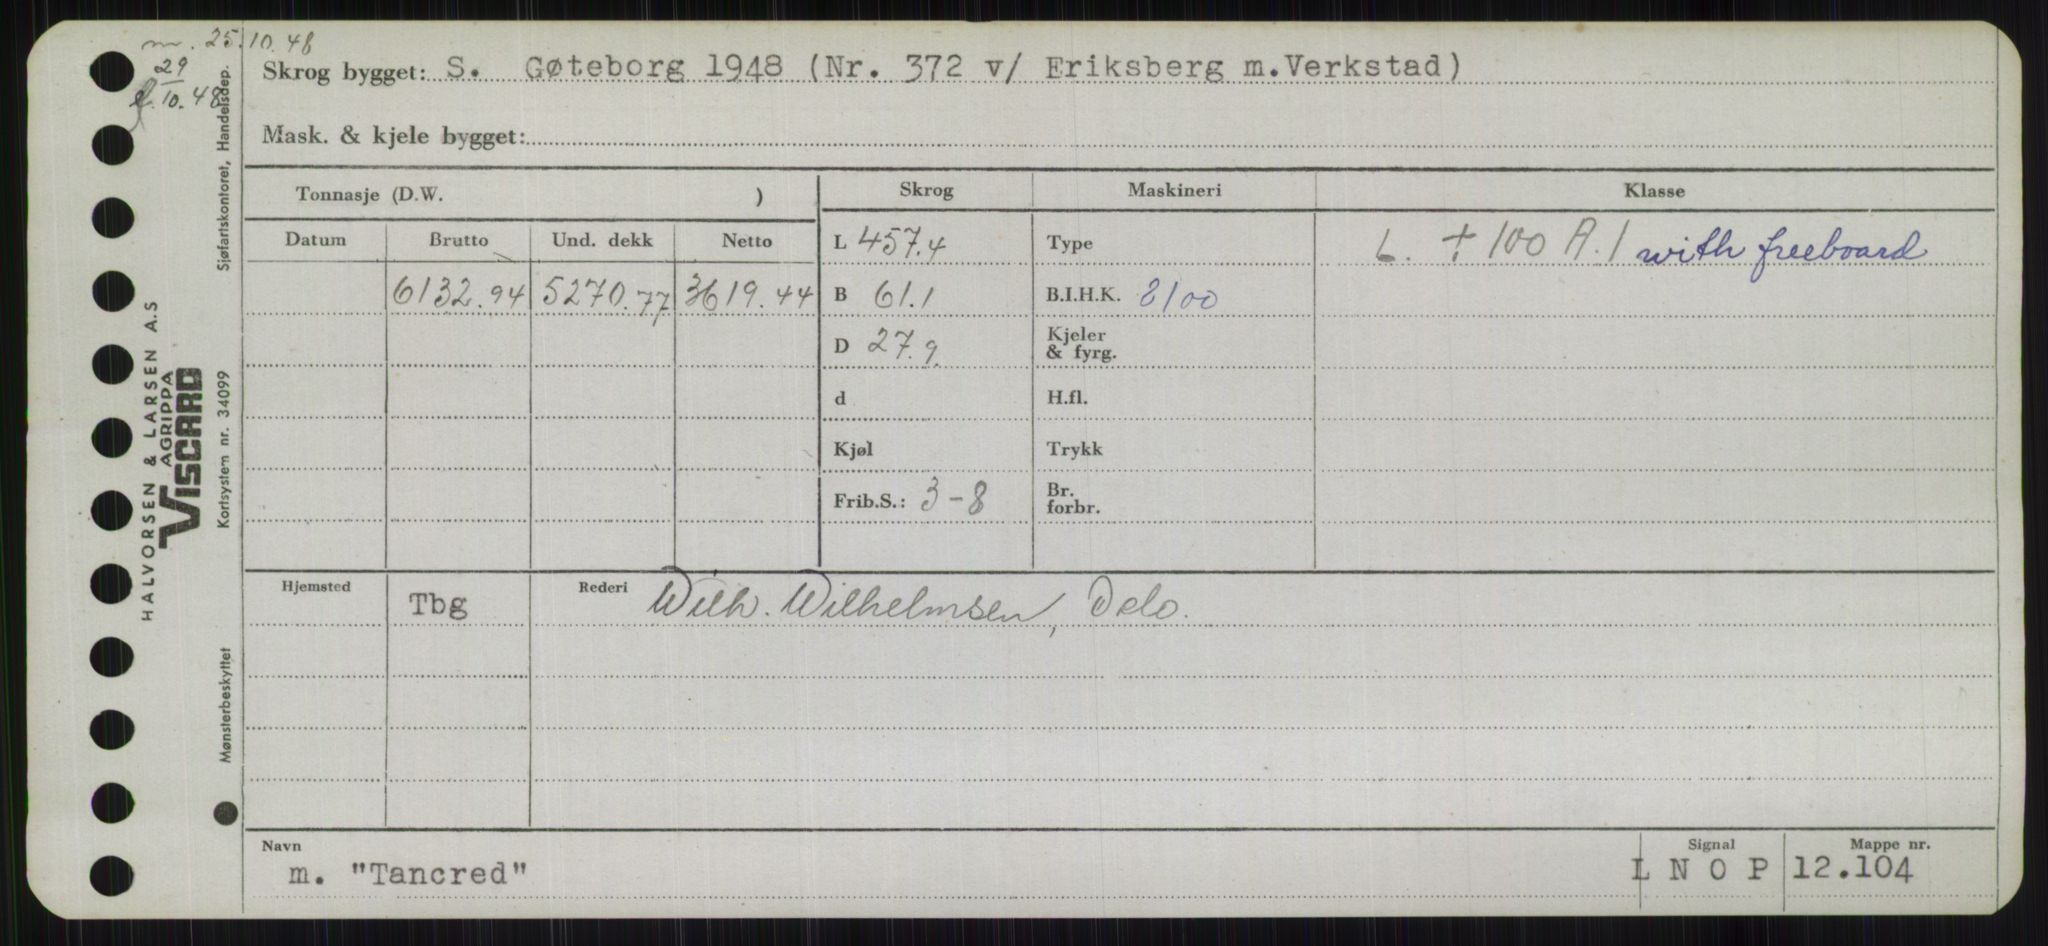 m. 25.10.48
29
10.48
Skrog bygget: S. Gøteborg 1948 (Nr. 372 v/ Eriksberg m.Verkstad)
Mask. & kjele bygget:
Tonnasje (D.W. )
Skrog Maskineri Klasse
Datum Brutto Und. dekk Netto
L 457.4 Type L. + 100 A.1 with freeboard
6132.94 5270.77 3619.44 B 61.1 B.I.H.K. 8100
D 27.9 Kjeler & fyrg.
d H.fl.
Kjøl Trykk
Frib.S.: 3-8 Br. forbr.
Hjemsted Tbg Rederi Wilh. Wilhelmsen, Oslo.
Navn Signal Mappe nr.
m. "Tancred" L N O P 12.104
Sjøfartskontoret, Handelsdep.
HALVORSEN & LARSEN A.S
AGRIPPA
VISCARD
Kortsystem nr. 34099
Mønsterbeskyttet